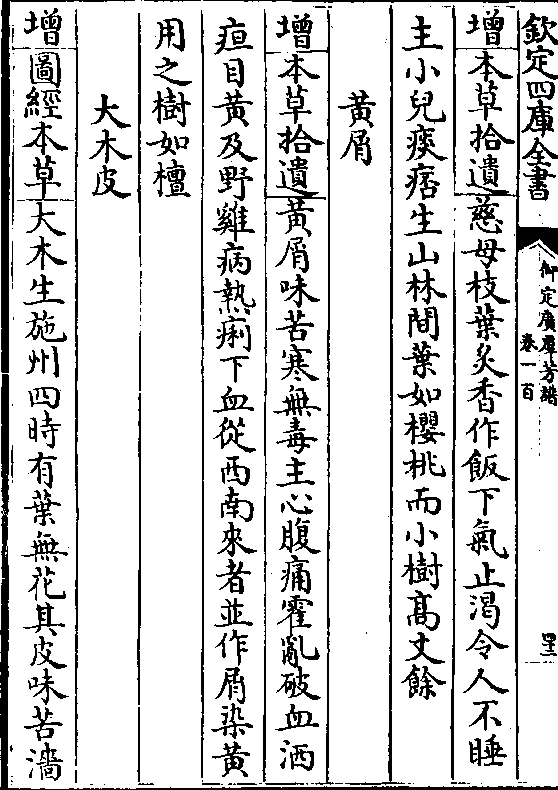 欽定四庫全書
御定廣群芳譜
卷一百
增本草拾遺慈母枝葉炙香作飯下氣止渴令人不睡
主小兒痰痞生山林間葉如櫻桃而小樹高丈餘
黃屑
增本草拾遺黃屑味苦寒無毒主心腹痛霍亂破血酒
疸目黃及野雞病熱痢下血從西南來者並作屑染黃
用之樹如檀
大木皮
增圖經本草大木生施州四時有葉無花其皮味苦濇